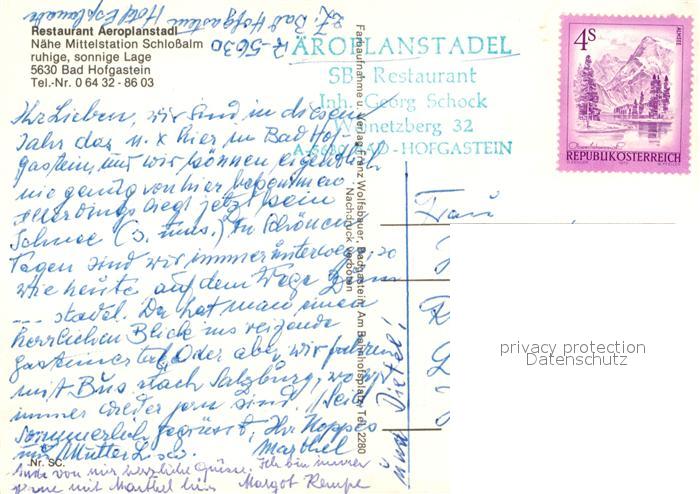 z. Zt. Bad Hofgastein Hotel Esplanade
A-5630
Restaurant Aeroplanstadl
Nähe Mittelstation Schloßalm
ruhige, sonnige Lage
5630 Bad Hofgastein
Tel.-Nr. 0 64 32 - 86 03
ÄROPLANSTADEL
SB Restaurant
Inh. Georg Schock
32
A-5630 BAD-HOFGASTEIN
4 S
ALMSEE
REPUBLIK ÖSTERREICH
Ihr Lieben, wir sind in diesem
Jahr das n. x hier in Bad Hof-
gastein, und wir können eigentlich
nie genug von hier bekommen.
Allerdings liegt jetzt kein
Schnee In schönen
Tagen sind wir immer unterwegs, so
wie heute auf dem Wege zum
.... stadel. Da hat man einen
herrlichen Blick ins reizende
Gasteinertal. Oder aber, wir fahren
mit Bus nach Salzburg, wo wir
immer wieder gern sind. Seid
sommerlich gegrüsst, Ihr
u. Mutter Marthel
Nr. SC.
Auch von mir herzliche Grüsse. Ich bin immer
gerne mit Marthel hier Margot Kempe
Farbaufnahme u. Verlag Franz Wolfsbauer, Badgastein, Am Bahnhofsplatz, Tel. 2280
Nachdruck verboten
und Dietel!
Frau
privacy protection
Datenschutz